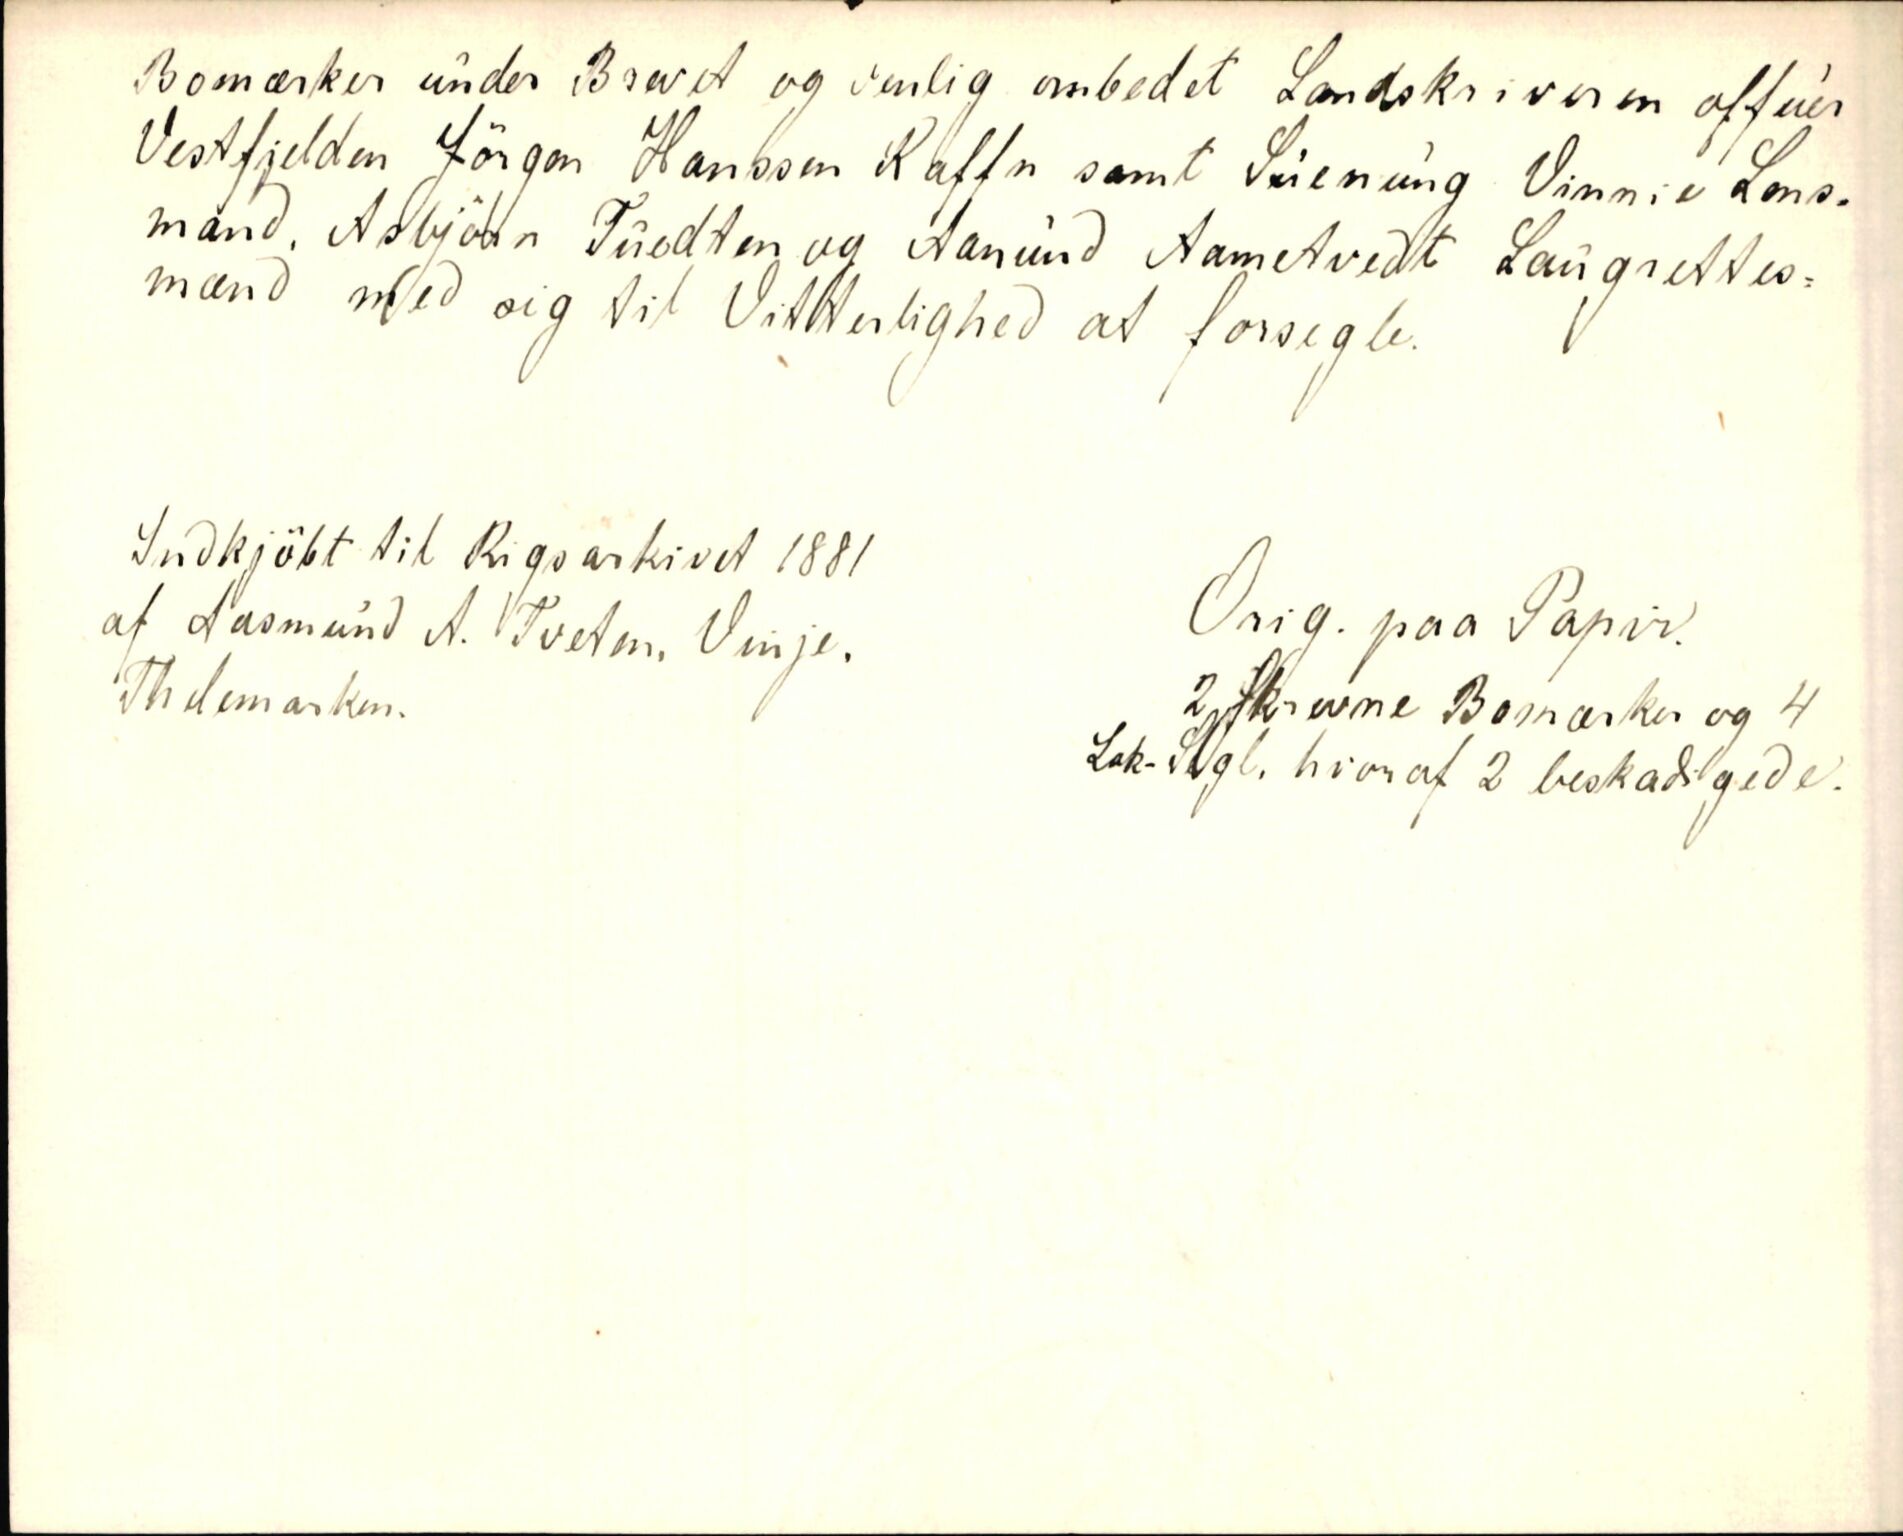 Bomærker under Brevet og venlig ombedet Landskriveren offuer
Vestfjelden Jörgen Hanssen Raffn samt Suenung Vinnie Lens-
mand, Asbjörn Tuedten og Aanund Aametvedt Laugrettes=
mænd med sig til Vitterlighed at forsegle.
Indkjöbt til Rigsarkivet 1881
af Aasmund A. Tveten, Vinje,
Thelemarken.
Orig. paa Papir.
2 skrevne Bomærker og 4
Lak-Segl, hvoraf 2 beskadigede.